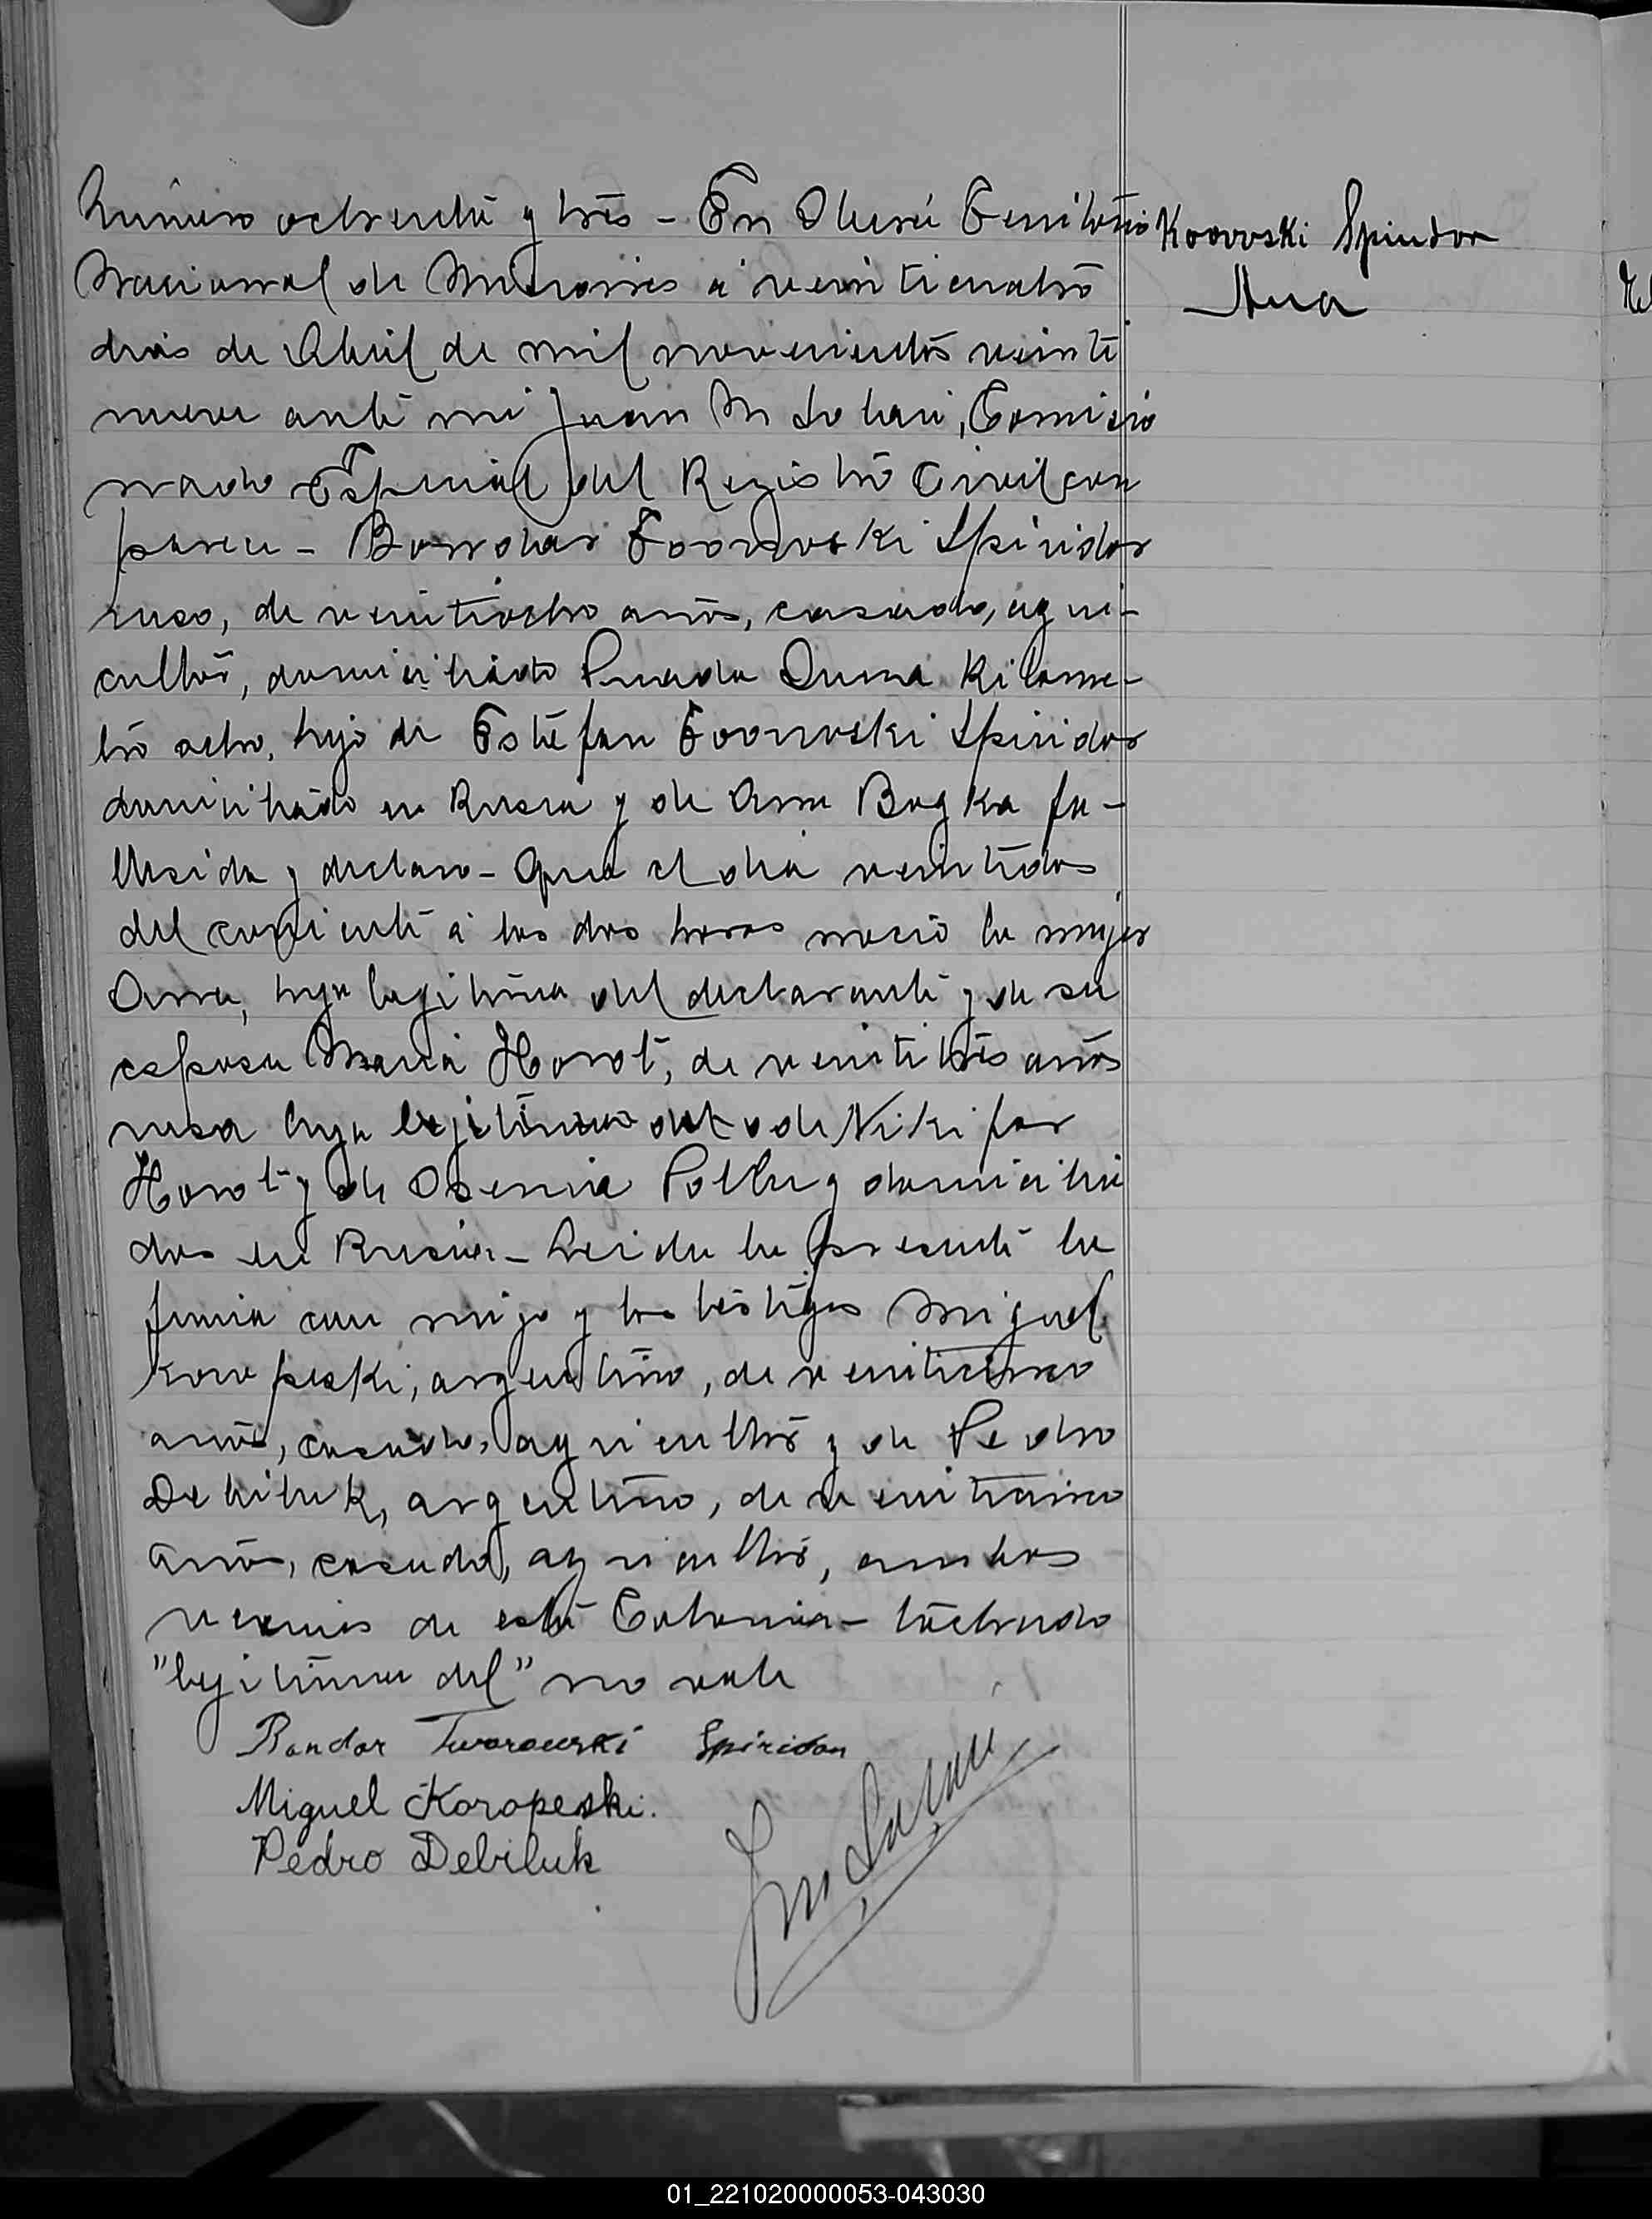 Número ochenta y tres - En Oberá Territorio
Nacional de Misiones a veinticuatro
dias de Abril de mil novecientos veinti
nueve ante mi Juan M Lotari, Comisio
nado Especial del Registro Civil com
parece - Bondar Tvorovski Spiridon
ruso, de veintiocho años, casado, agri-
cultor, domiciliado Picada Kilome-
tro ocho, hijo de Estefan Tvorovski Spiridon
domiciliado en Rusia y de Ana Bogka fa-
llecida y declaro - Que el dia veintidos
del corriente a las dos horas nació la mujer
Ana, hija legitima del declarante y de su
esposa Maria Horot, de veintitres años
rusa hija legitima del de Nikifor
Horot y de domicilia
dos en Rusia - Leida la presente la
firma con migo y los testigos Miguel
Koropeski, argentino, de veinticinco
años, casado, agricultor y de Pedro
Debiluk, argentino, de veinticinco
años, casado, agricultor, ambos
vecinos de esta Colonia - tachado
"legitima del" no vale
Bondar Tworowski Spiridon
Miguel Koropeski.
Pedro Debiluk
Koovoski Spiridon
Ana
01_221020000053-043030